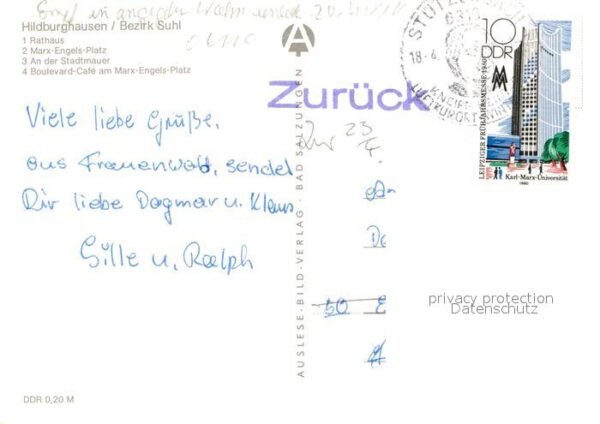 Hildburghausen / Bezirk Suhl
1 Rathaus
2 Marx-Engels-Platz
3 An der Stadtmauer
4 Boulevard-Café am Marx-Engels-Platz
Viele liebe Grüße.
aus Frauenwald, sendet
Dir liebe Dagmar u. Klaus
Sille u. Ralph
DDR 0,20 M
AUSLESE-BILD-VERLAG · BAD SALZUNGEN
Zurück
23
50 E
STÜTZ
18.4
10
DDR
LEIPZIGER FRÜHJAHRSMESSE 1980
Karl-Marx-Universität
1980
privacy protection
Datenschutz